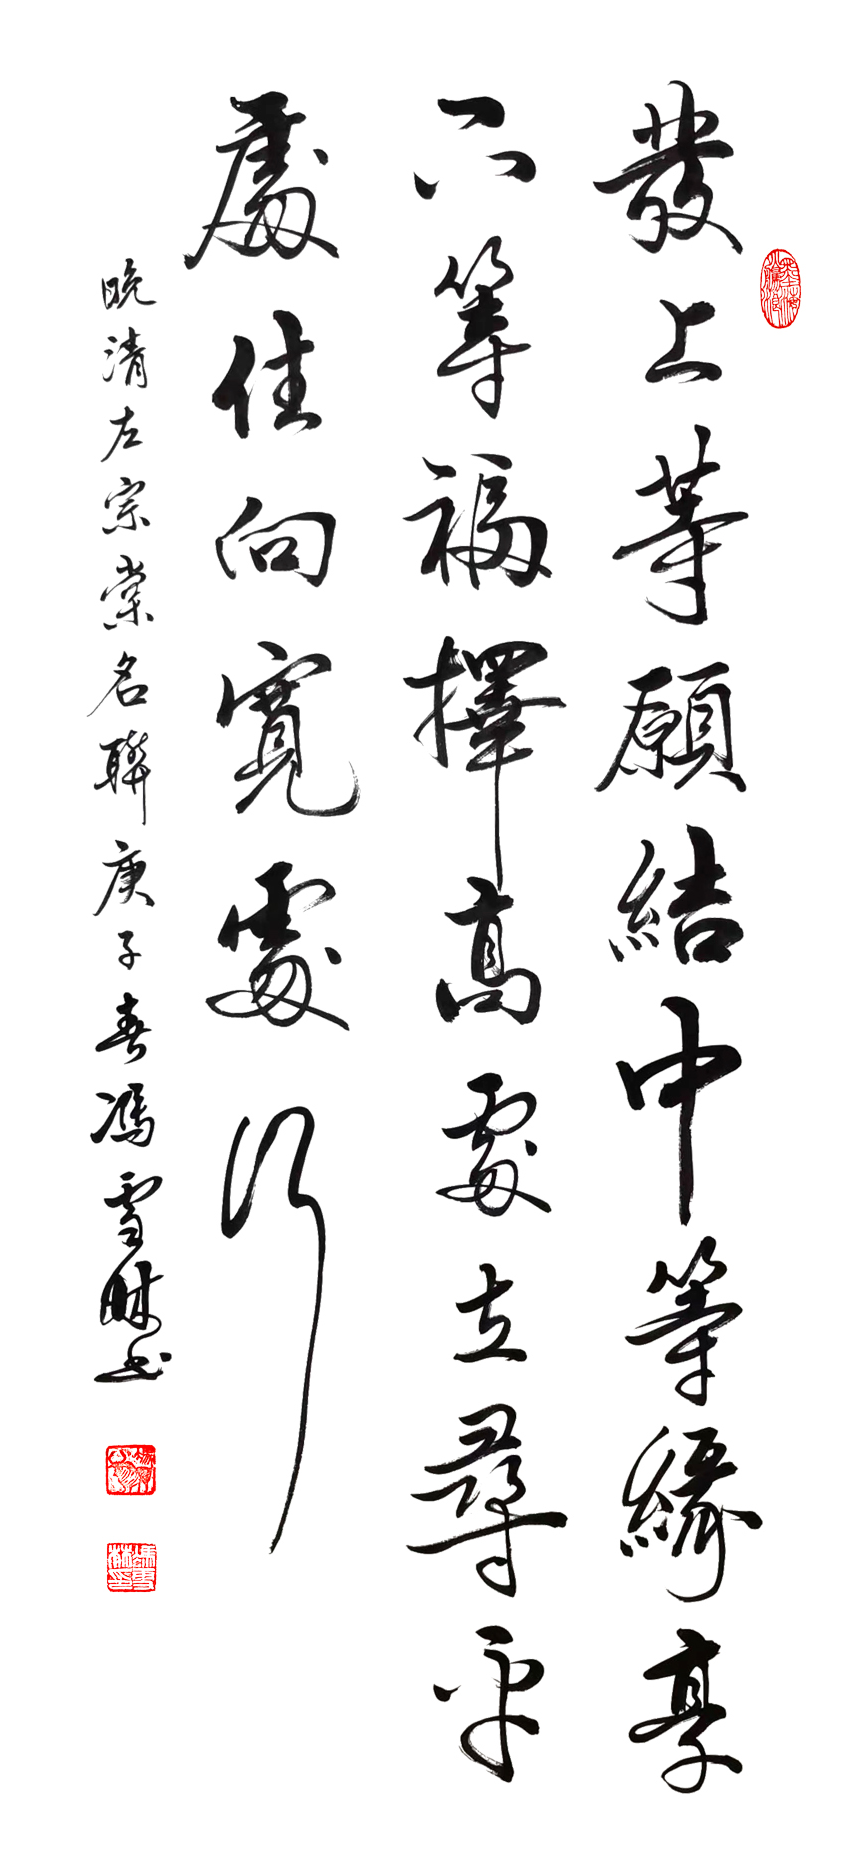 發上等願結中等緣享
下等福擇高處立尋平
處住向寬處行
晚清左宗棠名聯庚子春馮雪林書